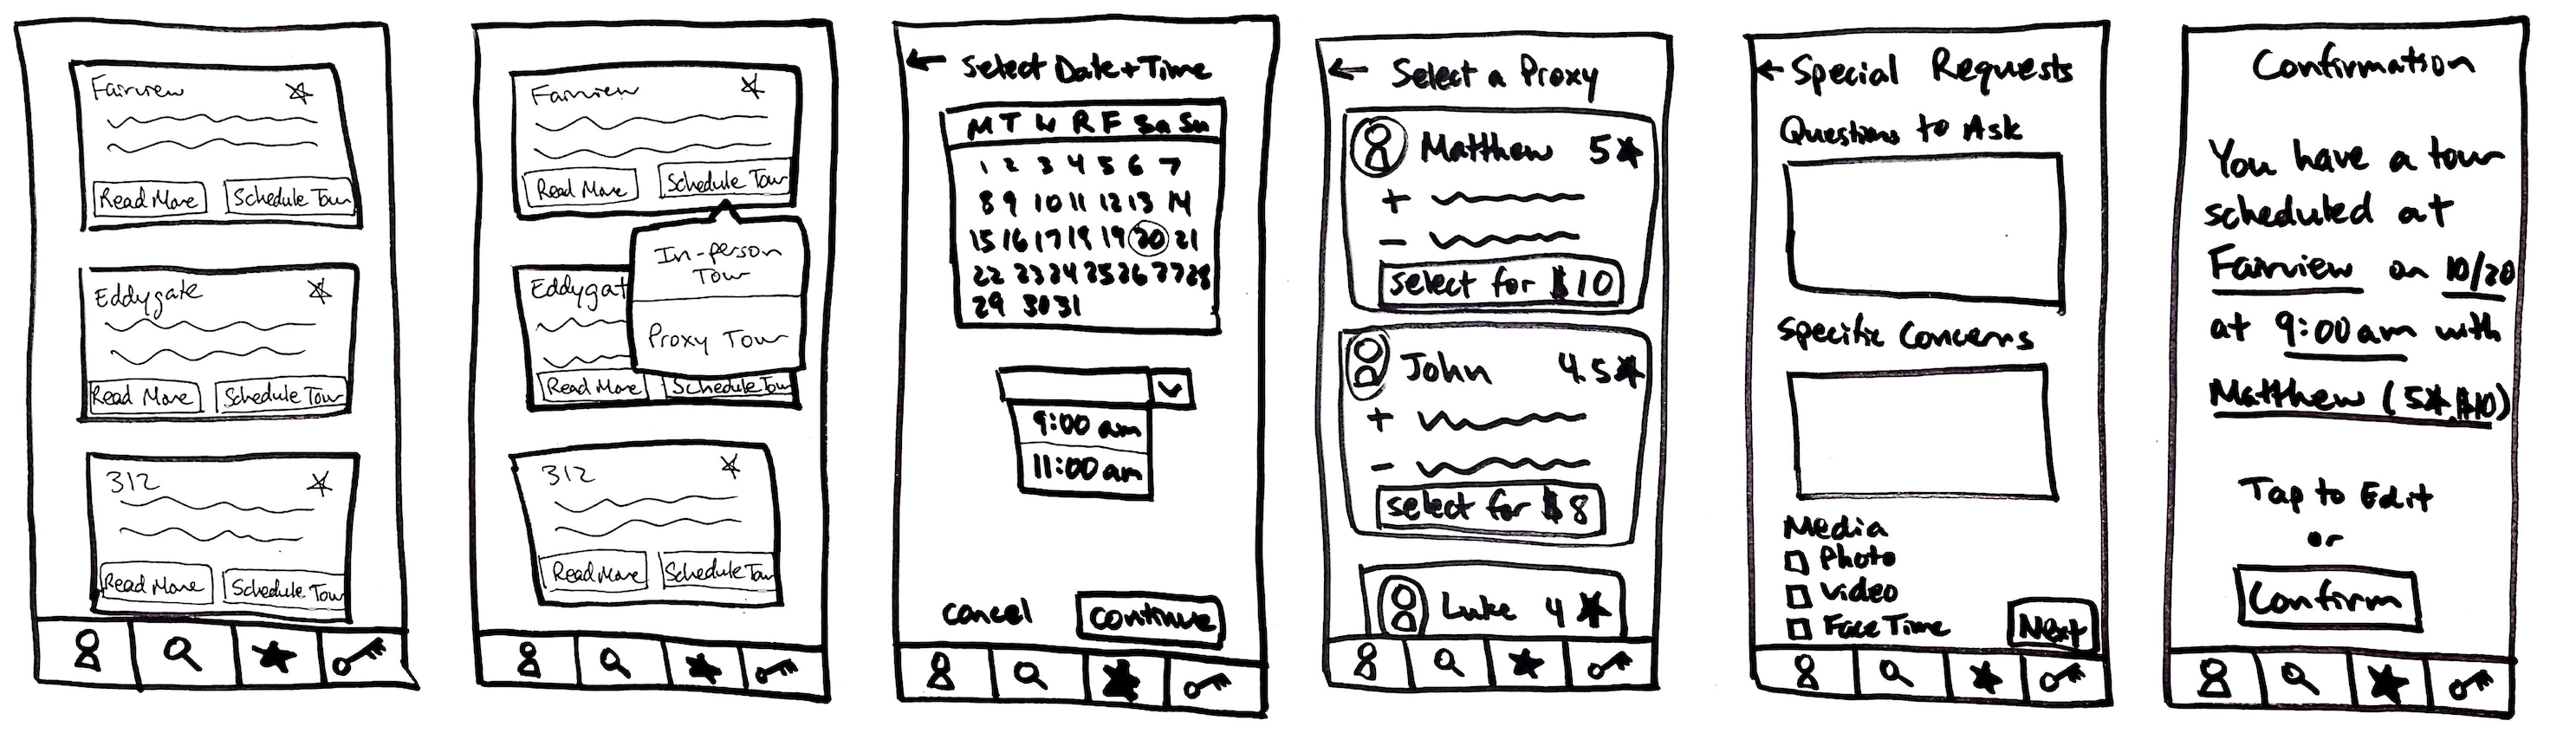 Fairview
Read More
Schedule Tour
Eddygate
Read More
Schedule Tour
312
Read More
Schedule Tour
Fairview
Read More
Schedule Tour
In-person
Tour
Proxy Tour
Eddygat
Read More
Schedule Tour
312
Read More
Schedule Tour
← Select Date + Time
M T W R F Sa Su
1 2 3 4 5 6 7
8 9 10 11 12 13 14
15 16 17 18 19 20 21
22 23 24 25 26 27 28
29 30 31
9:00 am
11:00 am
cancel
continue
← Select a Proxy
Matthew 5★
+
–
select for $10
John 4.5★
+
–
select for $8
Luke 4★
← Special Requests
Questions to Ask
Specific Concerns
Media
Photo
Video
FaceTime
Next
Confirmation
You have a tour
scheduled at
Fairview on 10/20
at 9:00 am with
Matthew (5★, $10)
Tap to Edit
or
Confirm